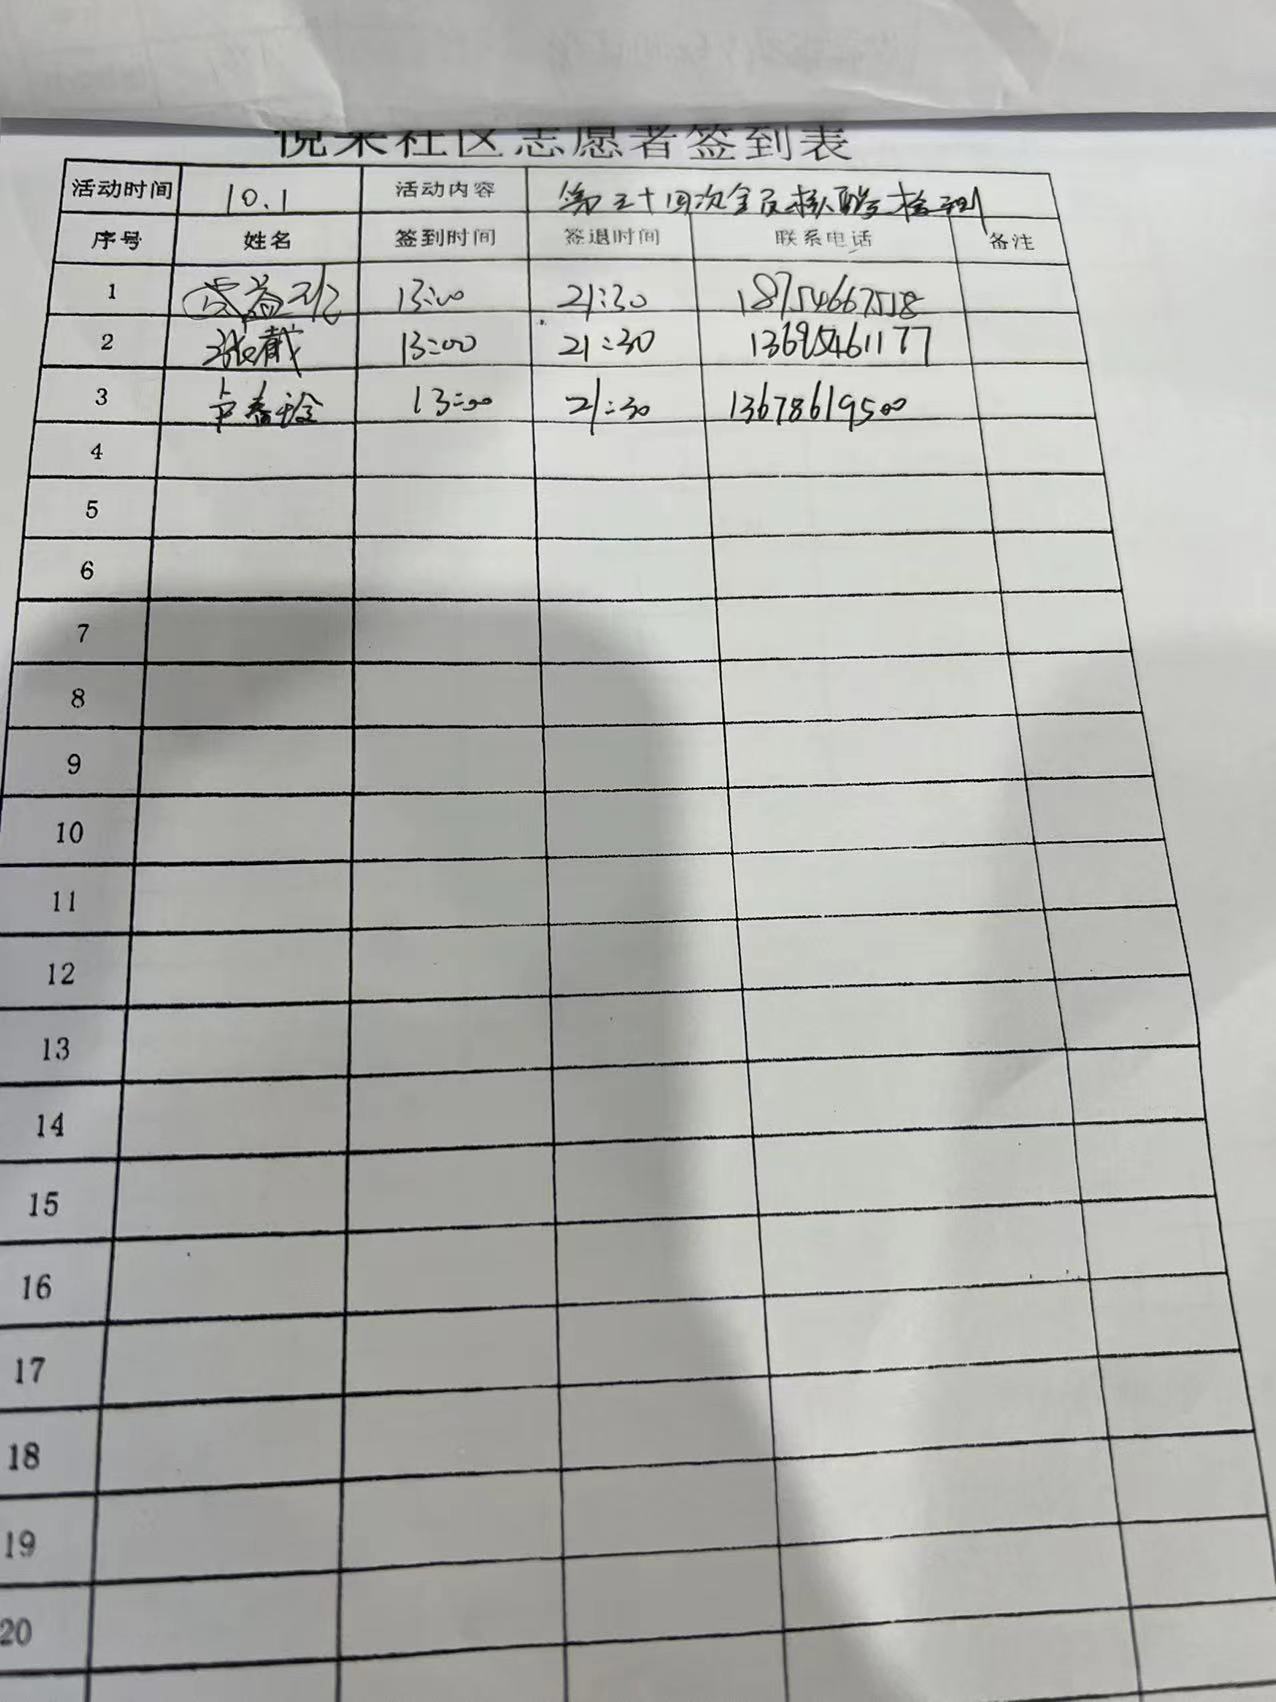 悦来社区志愿者签到表
活动时间 10.1 活动内容 第五十四次全员核酸检测
序号 姓名 签到时间 签退时间 联系电话 备注
1 13:00 21:30 18754667518
2 张戴 13:00 21:30 13695461177
3 13:00 21:30 13678619500
4
5
6
7
8
9
10
11
12
13
14
15
16
17
18
19
20